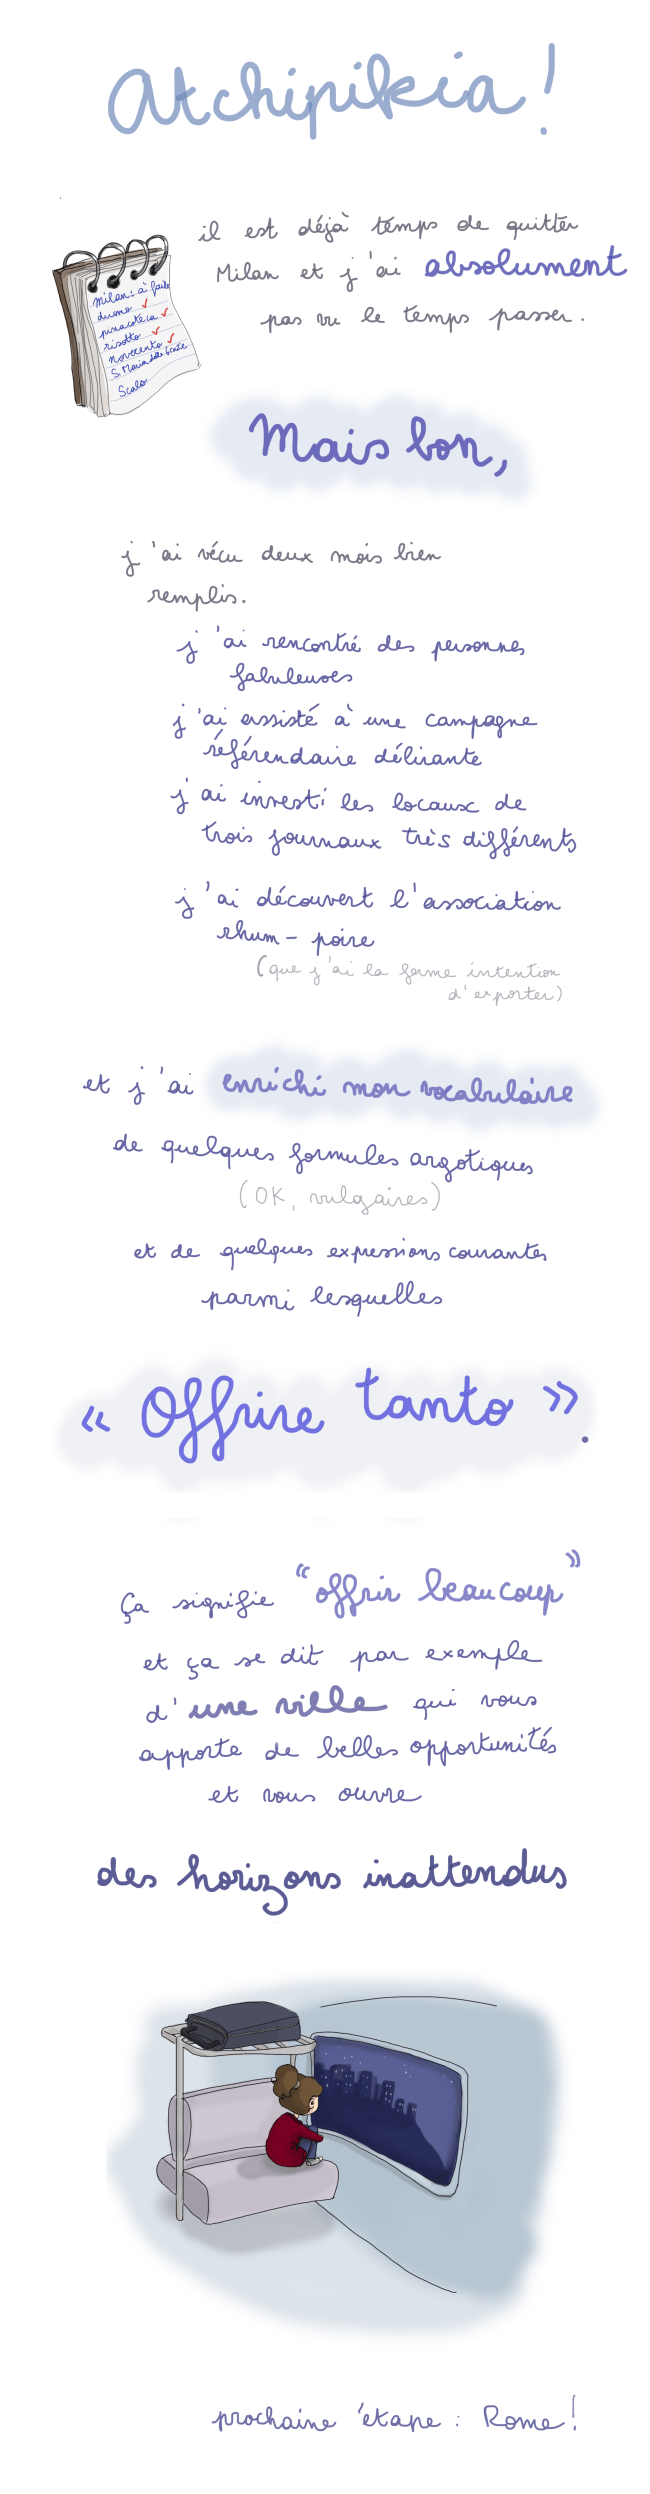 Atchipikia !
il est déjà temps de quitter
Milan et j'ai absolument
pas vu le temps passer.
Milan : à faire
duomo ✓
pinacoteca ✓
risotto ✓
novecento ✓
S. Maria delle Grazie
Scala
Mais bon,
j'ai vécu deux mois bien
remplis.
j'ai rencontré des personnes
fabuleuses
j'ai assisté à une campagne
référendaire délirante
j'ai investi les locaux de
trois journaux très différents
j'ai découvert l'association
rhum - poire
(que j'ai la ferme intention
d'exporter)
et j'ai enrichi mon vocabulaire
de quelques formules argotiques
(OK, vulgaires)
et de quelques expressions courantes
parmi lesquelles
« Offrire tanto ».
Ça signifie "offrir beaucoup"
et ça se dit par exemple
d'une ville qui vous
apporte de belles opportunités
et vous ouvre
des horizons inattendus
prochaine étape : Rome !